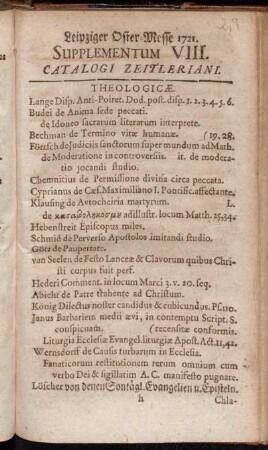 Leipziger Oster-Messe 1721.
SUPPLEMENTUM VIII.
CATALOGI ZEITLERIANI.
THEOLOGICÆ.
Lange Disp. Anti-Poiret. Dod. post. disp. 1. 2. 3. 4. 5. 6.
Budei de Anima sede peccati.
de Idoneo sacrarum literarum interprete.
Bechman de Termino vitæ humanæ. (19. 28.
Förtsch de Judiciis sanctorum super mundum ad Math.
de Moderatione in controversiis. it. de modera-
tio jocandi studio.
Chemnitius de Permissione divina circa peccata.
Cyprianus de Cæs. Maximiliano I. Pontific. affectante.
Klausing de Avtocheiria martyrum. L.
de adillustr. locum Matth. 25,34.
Hebenstreit Episcopus miles.
Schmid de Perverso Apostolos imitandi studio.
Götz de Paupertate.
van Seelen de Festo Lanceæ & Clavorum quibus Chri-
sti corpus fuit perf.
Hederi Comment. in locum Marci 3. v. 20. seq.
Abicht de Patre trahente ad Christum.
König Dilectus noster candidus & rubicundus. Pf. 110.
Janus Barbariem medii ævi, in contemptu Script. S.
conspicuam. (recensitæ conformis.
Liturgia Ecclesiæ Evangel. liturgiæ Apost. Act. 11, 42.
Wernsdorf de Causis turbarum in Ecclesia.
Fanaticorum restitutionem rerum omnium cum
verbo Dei & sigillatim A. C. manifesto pugnare.
Löscher von denen Sontägl. Evangelien u. Episteln.
h Chla-